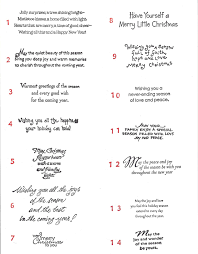 Jolly surprises, a love shining bright~
Mistletoe kisses a home filled with light.
Hearts that are merry a love of good cheer~
Wishing all this and a Happy New Year!
2 May the quiet beauty of this season
bring you deep joy and warm memories
to cherish throughout the coming year.
3 Warmest greetings of the season
and every good wish
for the coming year.
4 Wishing you all the happiness
your holiday can hold!
5 May Christmas
your heart
with a warm
and
glow
6 Wishing you all the joys
of the season
and the best
in the coming year!
7 Merry
Christmas
to you
8 Have Yourself a
Merry Little Christmas.
9 Wishing you a
season
full of faith,
hope and love
Merry Christmas
10 Wishing you a
never-ending season
of love and peace.
11 May your
family enjoy a special
season filled with love
and peace.
12 May the peace and joy
of the season be with you
throughout the new year
13 May the peace and love
you feel this holiday season
extend to every day
throughout the year.
14 May the
joy and wonder
of the season
be yours.